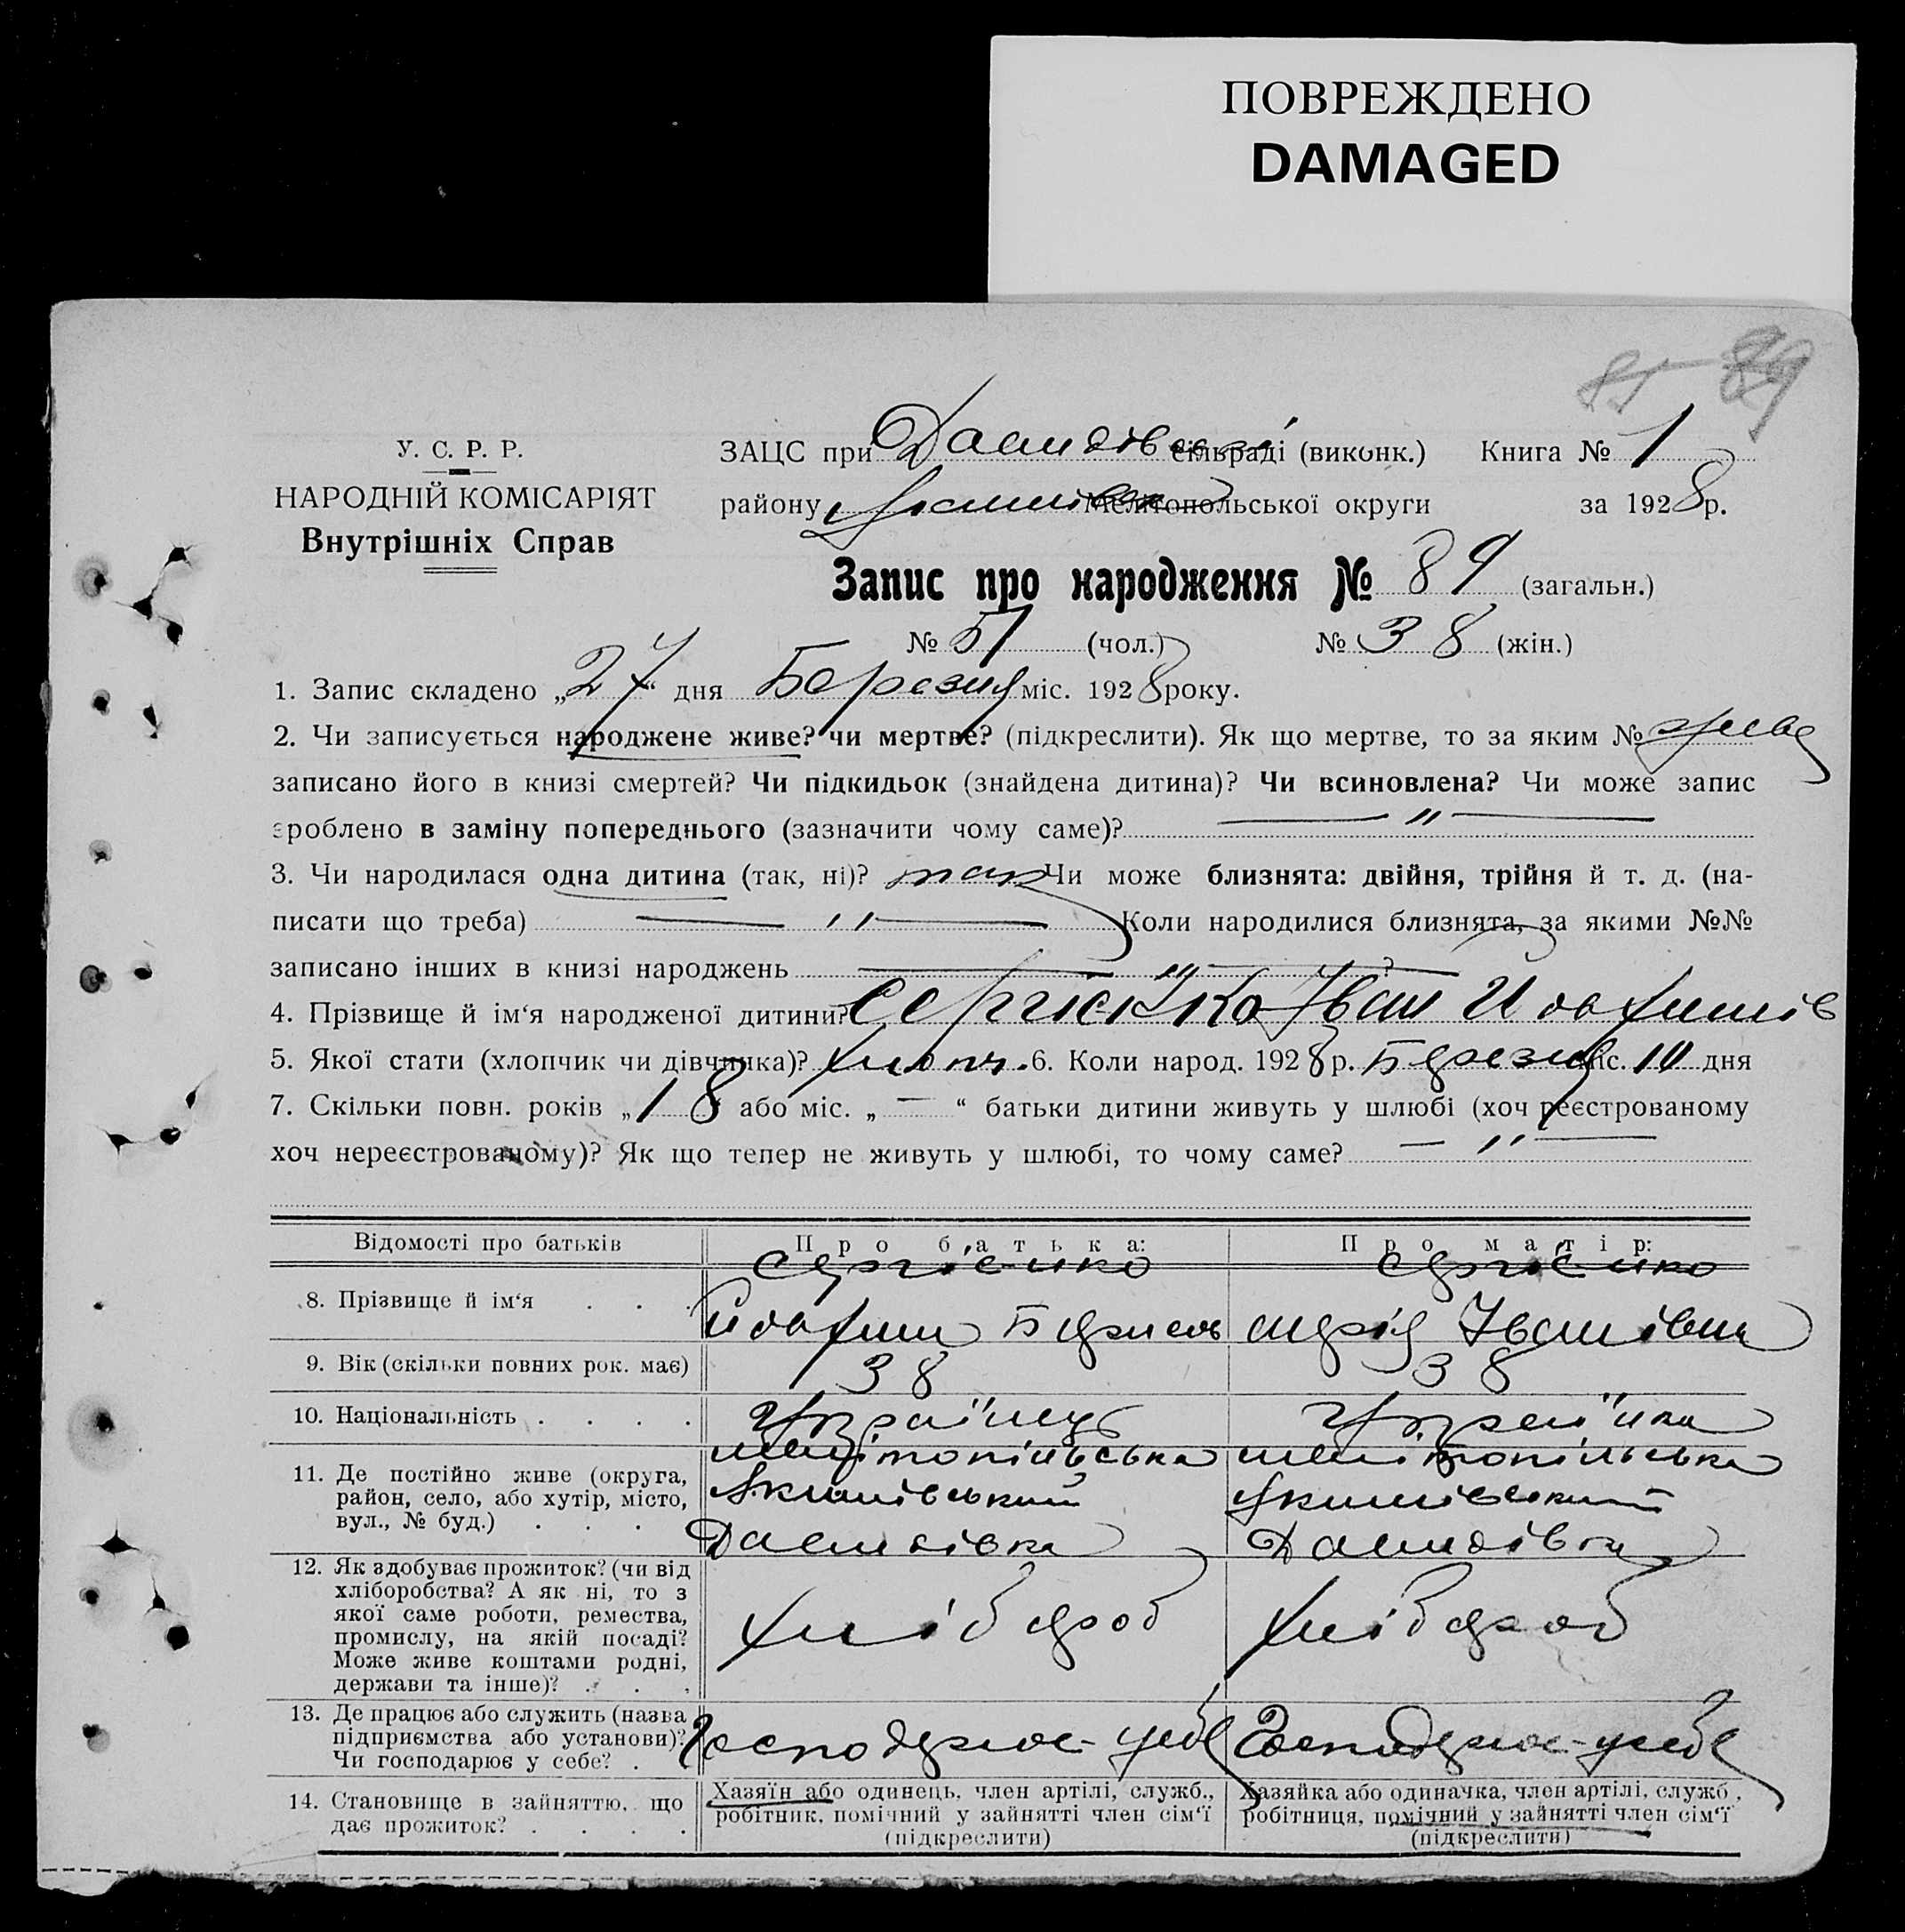 ПОВРЕЖДЕНО
DAMAGED
89
У. С. Р. Р.
НАРОДНІЙ КОМІСАРІЯТ
Внутрішніх Справ
ЗАЦС при Давидівській сільраді (виконк.) Книга № 1
району Якимівськ Мелітопольської округи за 1928 р.
Запис про народження № 89 (загальн.)
№ 51 (чол.) № 38 (жін.)
1. Запис складено „27“ дня Березня міс. 1928 року.
2. Чи записується народжене живе? чи мертве? (підкреслити). Як що мертве, то за яким № живе
записано його в книзі смертей? Чи підкидьок (знайдена дитина)? Чи всиновлена? Чи може запис
зроблено в заміну попереднього (зазначити чому саме)? — „ —
3. Чи народилася одна дитина (так, ні)? так Чи може близнята: двійня, трійня й т. д. (на-
писати що треба) — „ — Коли народилися близнята, за якими №№
записано інших в книзі народжень — „ —
4. Прізвище й ім‘я народженої дитини? Сергієнко Іван Йоахимів
5. Якої стати (хлопчик чи дівчинка)? хлопч. 6. Коли народ. 1928 р. Березня міс. 10 дня
7. Скільки повн. років „18“ або міс. „—“ батьки дитини живуть у шлюбі (хоч реєстрованому
хоч нереєстрованому)? Як що тепер не живуть у шлюбі, то чому саме? — „ —
Відомості про батьків
Про батька:
Про матір:
8. Прізвище й ім‘я . . .
Сергієнко
Йоахим
Сергієнко
Марія Іванівна
9. Вік (скільки повних рок. має)
38
38
10. Національність . . . .
Українець
Українка
11. Де постійно живе (округа,
район, село, або хутір, місто,
вул., № буд.) . . .
Мелітопільська
Якимівський
Давидівка
Мелітопільська
Якимівський
Давидівка
12. Як здобуває прожиток? (чи від
хліборобства? А як ні, то з
якої саме роботи, ремества,
промислу, на якій посаді?
Може живе коштами родні,
держави та інше)? . . .
хлібороб
хлібороб
13. Де працює або служить (назва
підприємства або установи)?
Чи господарює у себе? .
Господарює у себе
Господарює у себе
14. Становище в зайняттю, що
дає прожиток? . . . .
Хазяїн або одинець, член артілі, служб.,
робітник, помічний у зайнятті член сім‘ї
(підкреслити)
Хазяйка або одиначка, член артілі, служб.,
робітниця, помічний у зайнятті член сім‘ї
(підкреслити)